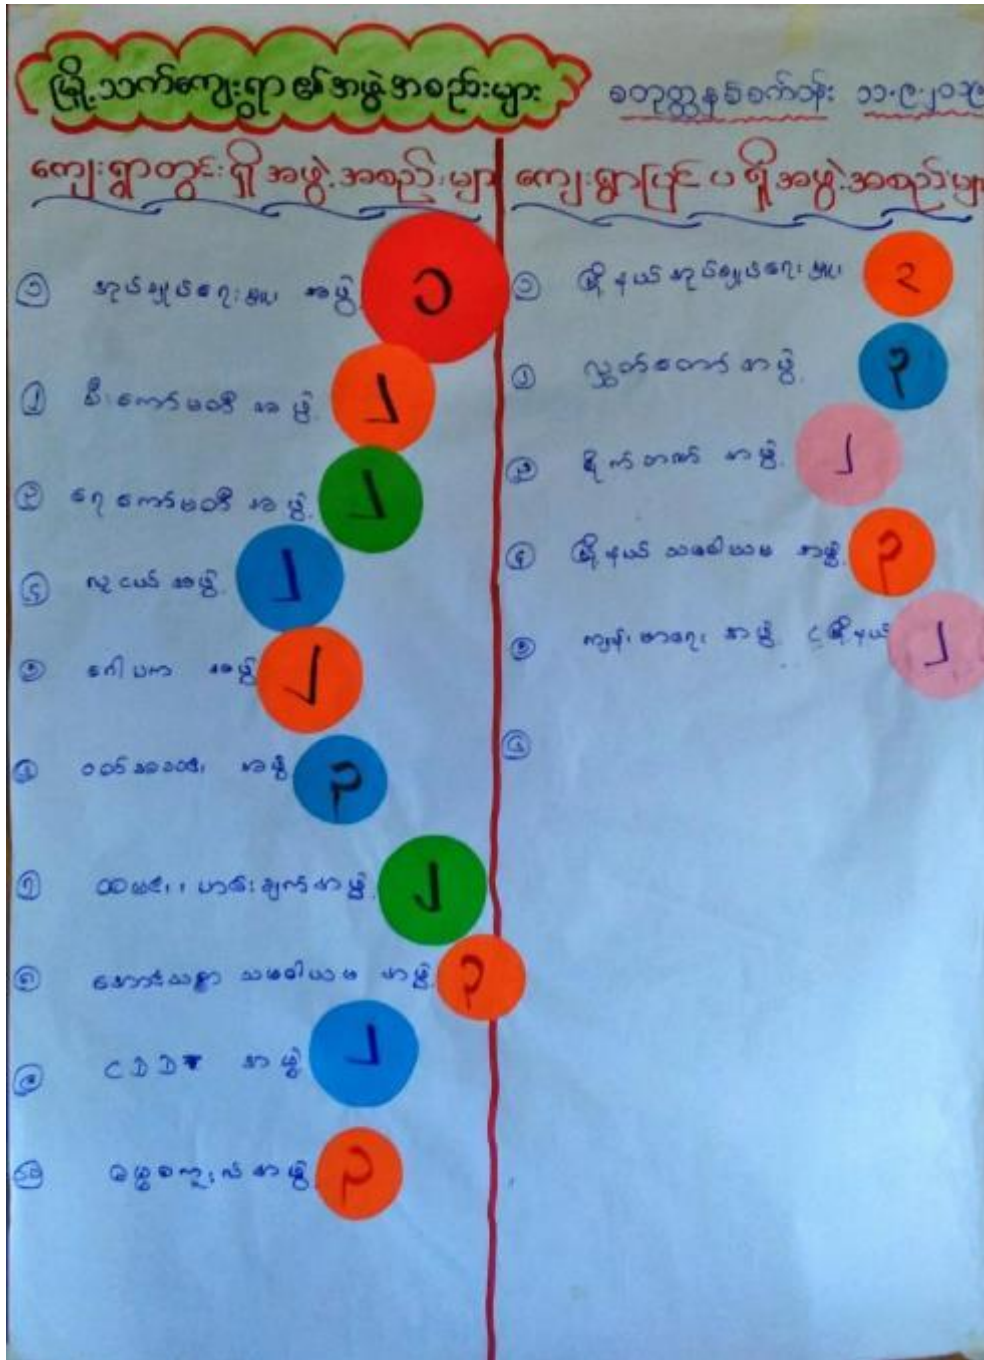 မြို့သက်ကျေးရွာ၏အဖွဲ့အစည်းများ
စတုတ္ထနှစ်စက်ဝန်း ၁၁.၉.၂၀၁၉
ကျေးရွာတွင်းရှိအဖွဲ့အစည်းများ
၁ အုပ်ချုပ်ရေးမှူး အဖွဲ့ ၁
၂ မီးကော်မတီ အဖွဲ့ ၂
၃ ရေကော်မတီ အဖွဲ့ ၂
၄ လူငယ်အဖွဲ့ ၂
၅ ဂေါပက အဖွဲ့ ၂
၆ ဝတ်အသင်း အဖွဲ့ ၃
၇ ထမင်း၊ ဟင်းချက်အဖွဲ့ ၂
၈ အောင်သစ္စာ သမဝါယမ အဖွဲ့ ၃
၉ CDD အဖွဲ့ ၂
၁၀ ဓမ္မစကူးလ်အဖွဲ့ ၃
ကျေးရွာပြင်ပရှိအဖွဲ့အစည်းများ
၁ မြို့နယ်အုပ်ချုပ်ရေးမှူး ၃
၂ လွှတ်တော်အဖွဲ့ ၃
၃ စိုက်ဘဏ် အဖွဲ့ ၂
၄ မြို့နယ် သမဝါယမ အဖွဲ့ ၃
၅ ကျန်းမာရေး အဖွဲ့ မြို့နယ် ၂
၆